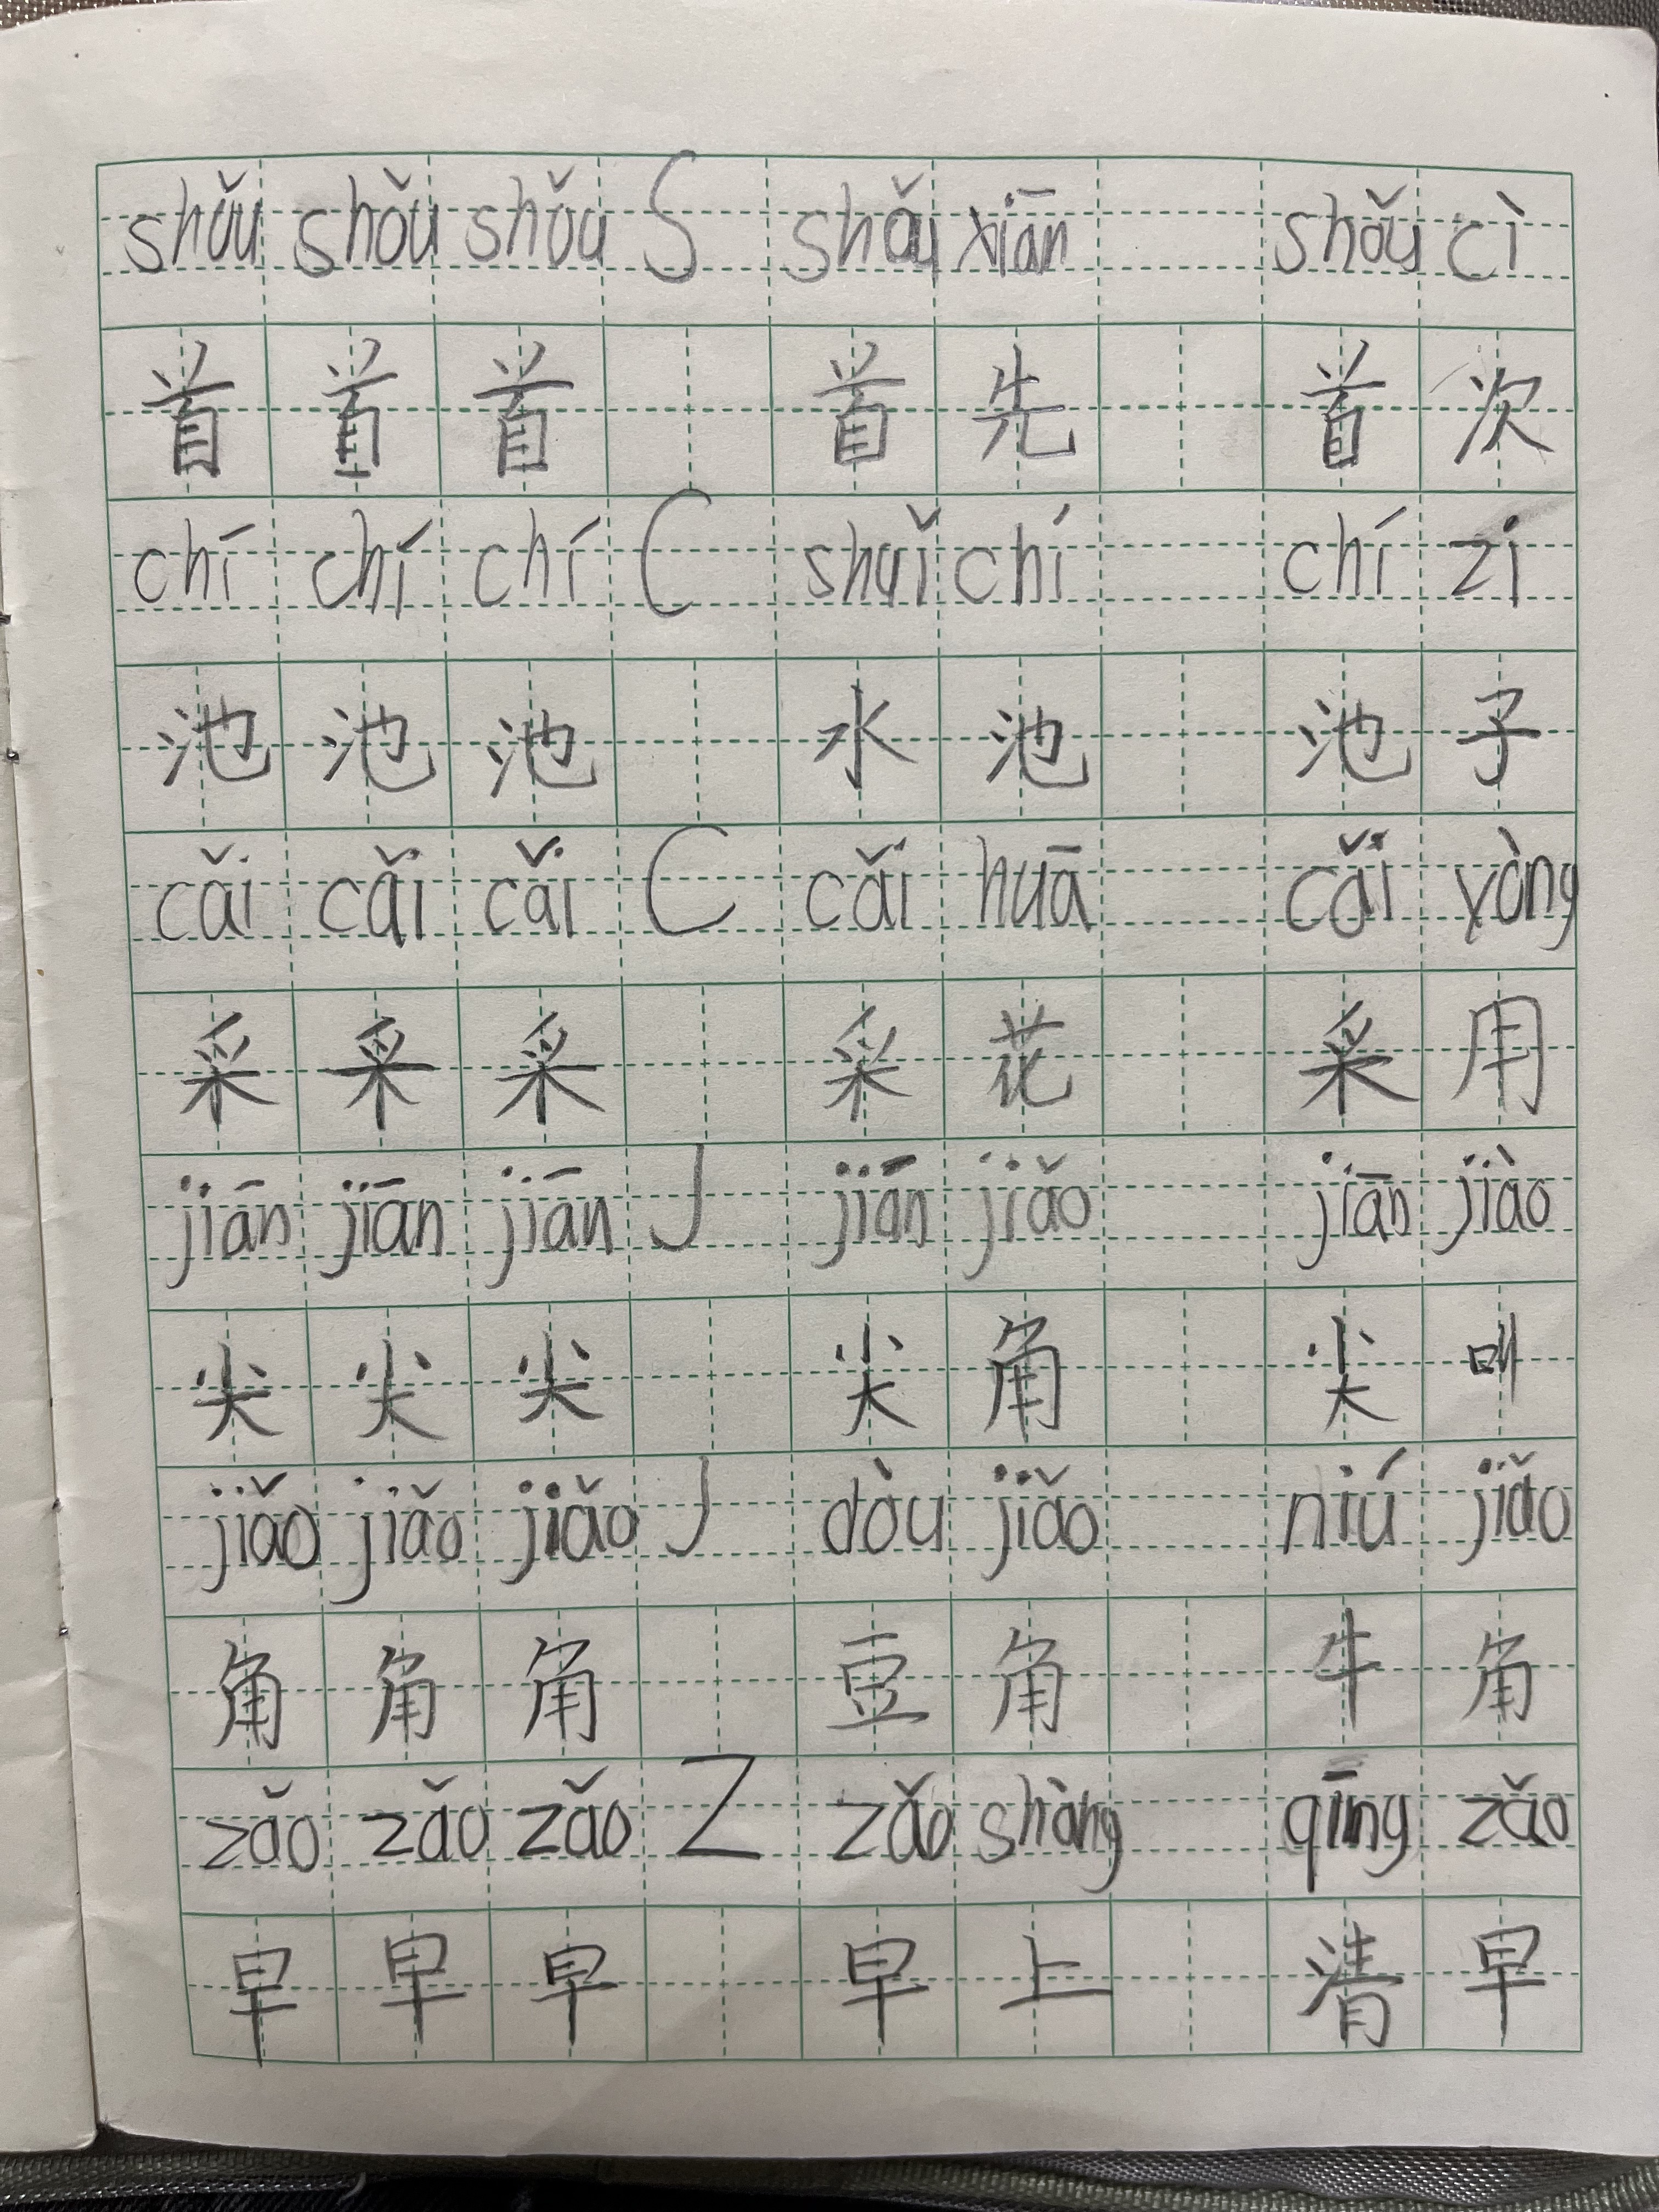 shǒu shǒu shǒu S shǒu xiān shǒu cì
首 首 首 首 先 首 次
chí chí chí C shuǐ chí chí zi
池 池 池 水 池 池 子
cǎi cǎi cǎi C cǎi huā cǎi yòng
采 采 采 采 花 采 用
jiān jiān jiān J jiān jiǎo jiān jiào
尖 尖 尖 尖 角 尖 叫
jiǎo jiǎo jiǎo J dòu jiǎo niú jiǎo
角 角 角 豆 角 牛 角
zǎo zǎo zǎo Z zǎo shàng qīng zǎo
早 早 早 早 上 清 早